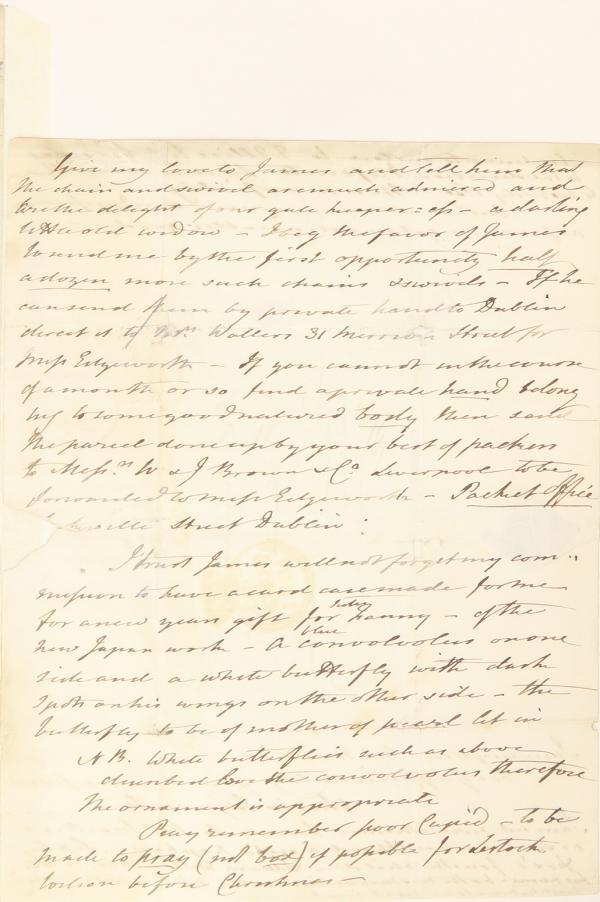 Give my love to James and tell him that
the chain and swivel are much admired and
are the delight of our gate keeper = ess - a darling
little old widow - I beg the favor of James
to send me by the first opportunity half
a dozen more such chains & swivels - If he
can send them by private hand to Dublin
direct it to Mrs Wallers 31 Merrion Street for
Miss Edgeworth - If you cannot in the course
of a month or so find a private hand belong
ing to some good natured body then send
the parcel done up by your best of packers
to Messrs W & J Brown & Co. Liverpool to be
forwarded to Miss Edgeworth - Packet Office
Street Dublin
I trust James will not forget my com-
mission to have a card case made for me
for a new years gift for Lady Fanny - of the
new Japan work - A blue convolvolus on one
side and a white butterfly with dark
spots on his wings on the other side - the
butterfly to be of mother of pearl let in
NB. White butterflies such as above
described love the convolvolus therefore
the ornament is appropriate
Pray remember poor Cupid - to be
made to pray (not box) if possible for
before Christmas -